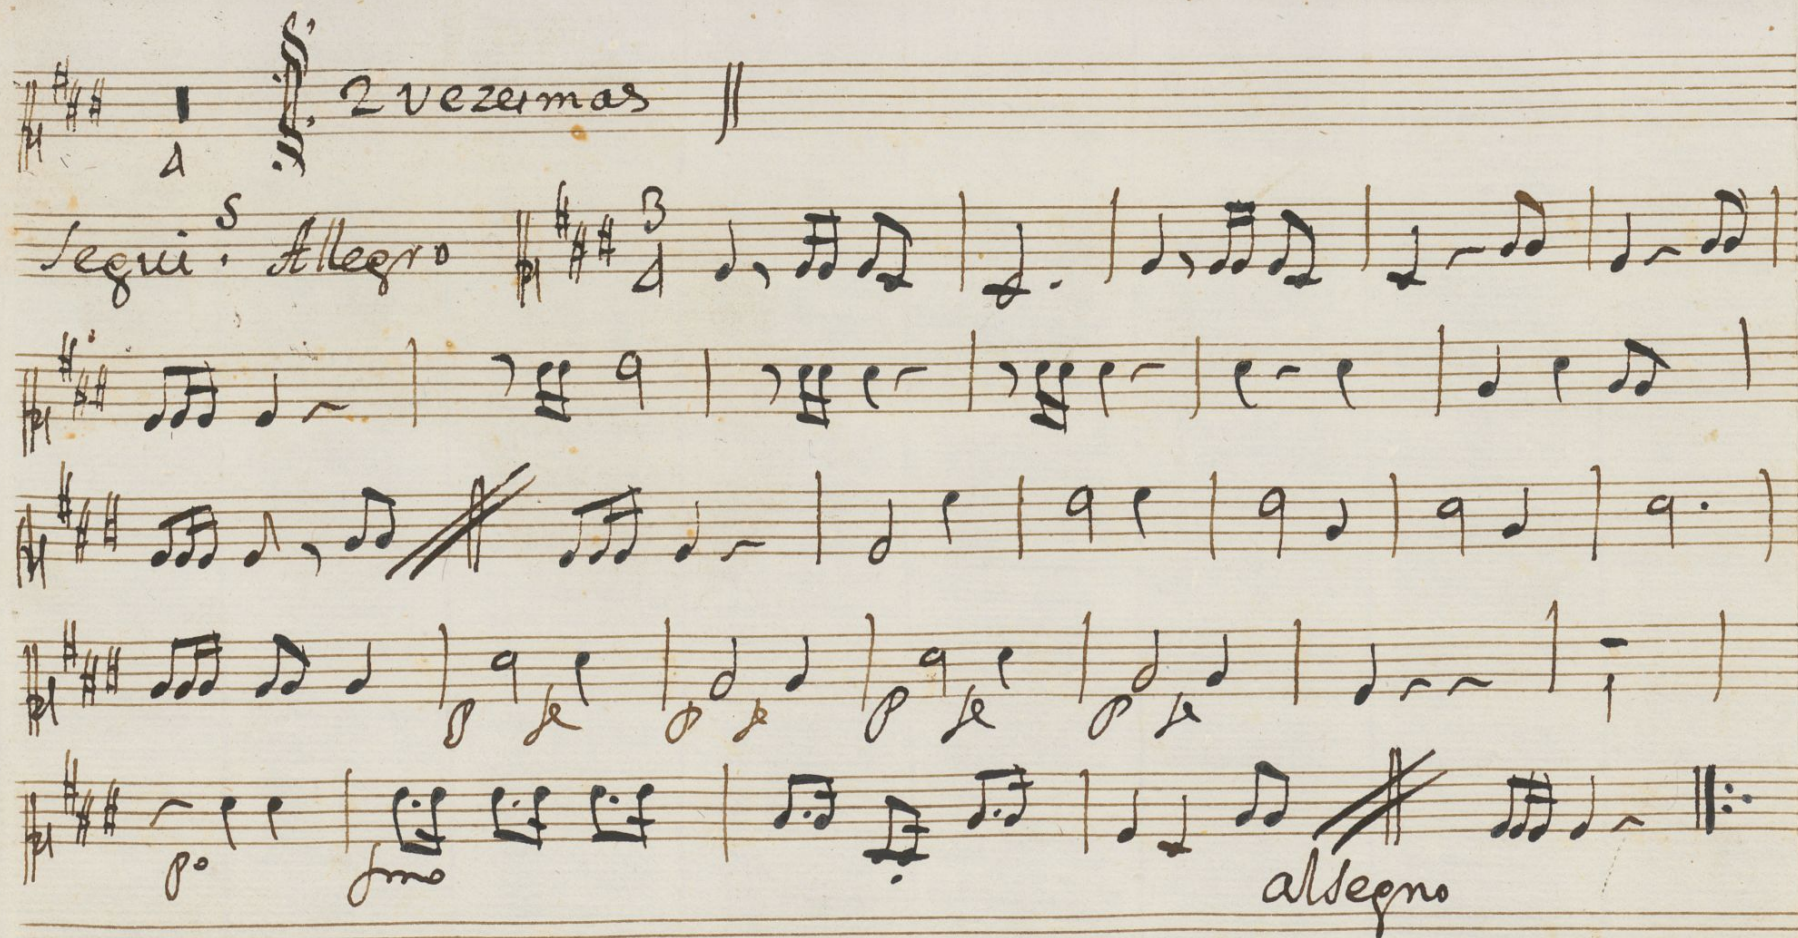 4 2 vezes mas
Segui.s Allegro 3 4
P fe P fe P fe P fe
po fmo
al segno